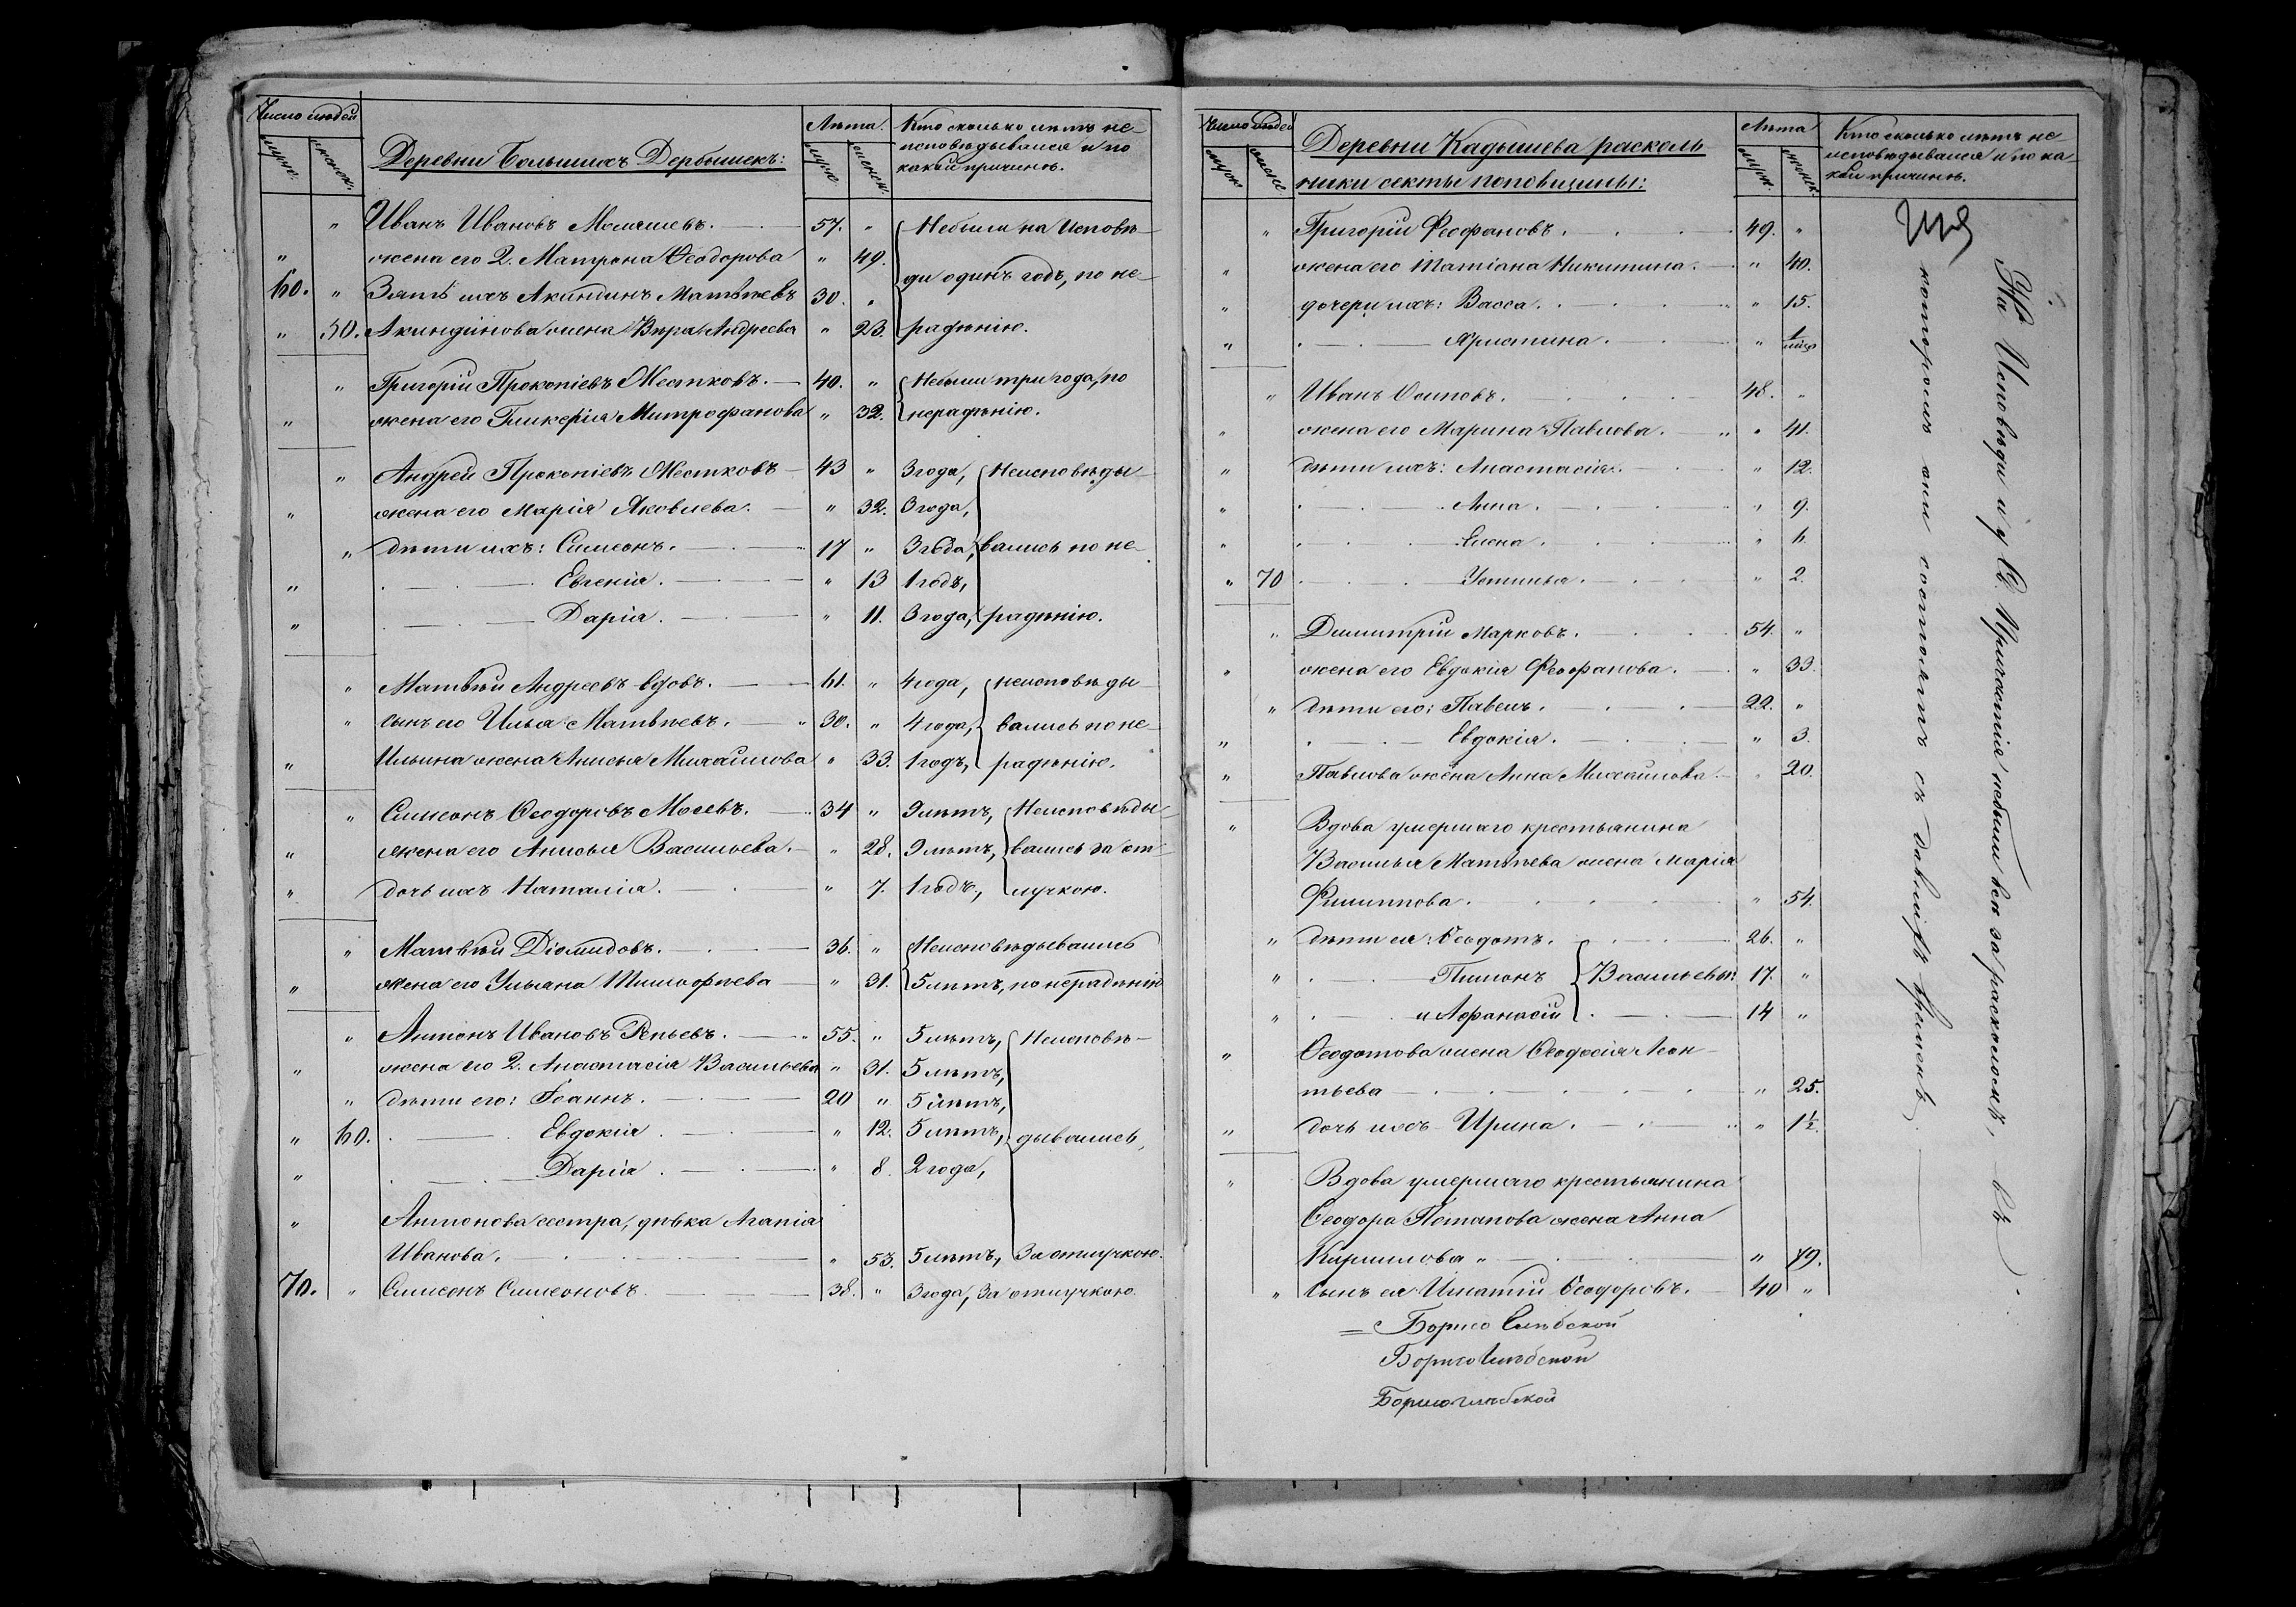 Число людей
мужск.
женск.
Деревни Большихъ Дербышекъ:
Лѣта.
мужс.
женск.
Кто сколько лѣтъ не-
исповѣдывался и по
какой причинѣ.
" Иванъ Ивановъ 57. " Небыли на Исповѣ-
" жена его 2. Матрона Ѳеодорова " 49. ди одинъ годъ, по не-
60. " Зять ихъ Акиндинъ Матвѣевъ 30. "
" 50. Акиндинова жена Вѣра Андреева " 23. радѣнію.
" Григорій Прокопіевъ Жестковъ. 40. " Небыли три года, по
" жена его Гликерія Митрофанова " 32. нерадѣнію.
" Андрей Прокопіевъ Жестковъ 43 " 3 года, Неисповѣды-
" жена его Марія Яковлева. " 32. 3 года,
" дѣти ихъ: Симеонъ. 17 " 3 года, вались по не-
" Евгенія. " 13 1 годъ,
" Дарія. " 11. 3 года, радѣнію.
" Матвѣй Андреевъ вдовъ. 61. " 4 года, неисповѣды-
" сынъ его Илья Матвѣевъ. 30. " 4 года, вались по не-
" Ильина жена Анисья Михайлова " 33. 1 годъ, радѣнію.
" Симеонъ Ѳеодоровъ Мосевъ. 34 " 9 лѣтъ, Неисповѣды-
" жена его Анисья Васильева. " 28. 9 лѣтъ, вались за от-
" дочь ихъ Наталія. " 7. 1 годъ, лучкою.
" Матвѣй Діомидовъ. 36. " Неисповѣдывались
" жена его Ульяна Тимофѣева " 31. 5 лѣтъ, по нерадѣнію
" Антонъ Ивановъ Рѣпьевъ. 55. " 5 лѣтъ, Неисповѣ-
" жена его 2. Анастасія Васильева " 31. 5 лѣтъ,
" дѣти его: Іоаннъ. 20 " 5 лѣтъ,
" 60. Евдокія " 12. 5 лѣтъ, дывались,
" Дарія " 8. 2 года,
" Антонова сестра, дѣвка Агапія
Иванова. " 53. 5 лѣтъ, За отлучкою.
70. " Симеонъ Симеоновъ. 38. " 3 года, За отлучкою.
Число людей
мужск.
женск.
Деревни Кадышева расколь
ники секты поповщины:
Лѣта
мужск.
женск.
Кто сколько лѣтъ не
исповѣдывался и по ка-
кой причинѣ.
" Григорій Феофановъ. 49. "
" жена его Татіана Никитина. " 40.
" дочери ихъ: Васса. " 15.
" Христина. "
" Иванъ Осиповъ. 48. "
" жена его Марина Павлова. " 41.
" дѣти ихъ: Анастасія. " 12.
" Анна. " 9.
" Елена. " 6.
" 70 Устинья. " 2.
" Димитрій Марковъ. 54. "
" жена его Евдокія Феофанова. " 33.
" дѣти его: Павелъ. 22. "
" Евдокія. " 3.
" Павлова жена Анна Михайлова. " 20.
" Вдова умершаго крестьянина
Василья Матвѣева жена Марія
Филиппова. " 54.
" дѣти ея: Ѳеодотъ. 26. "
" Пимонъ Васильевы 17. "
" и Афанасій 14 "
" Ѳеодотова жена Ѳеодосія Леон-
тьева " 25.
" дочь ихъ Ирина. " 1½.
" Вдова умершаго крестьянина
Ѳеодора Потапова жена Анна
Кирилова " 79.
" Сынъ ея Игнатій Ѳеодоровъ. 40 "
Борисо Глѣбской
Борисоглѣбской
Борисоглѣбской
На Исповѣди и у Св. Причастія небыли всѣ за расколомъ, въ
которомъ они состоятъ съ давнихъ временъ